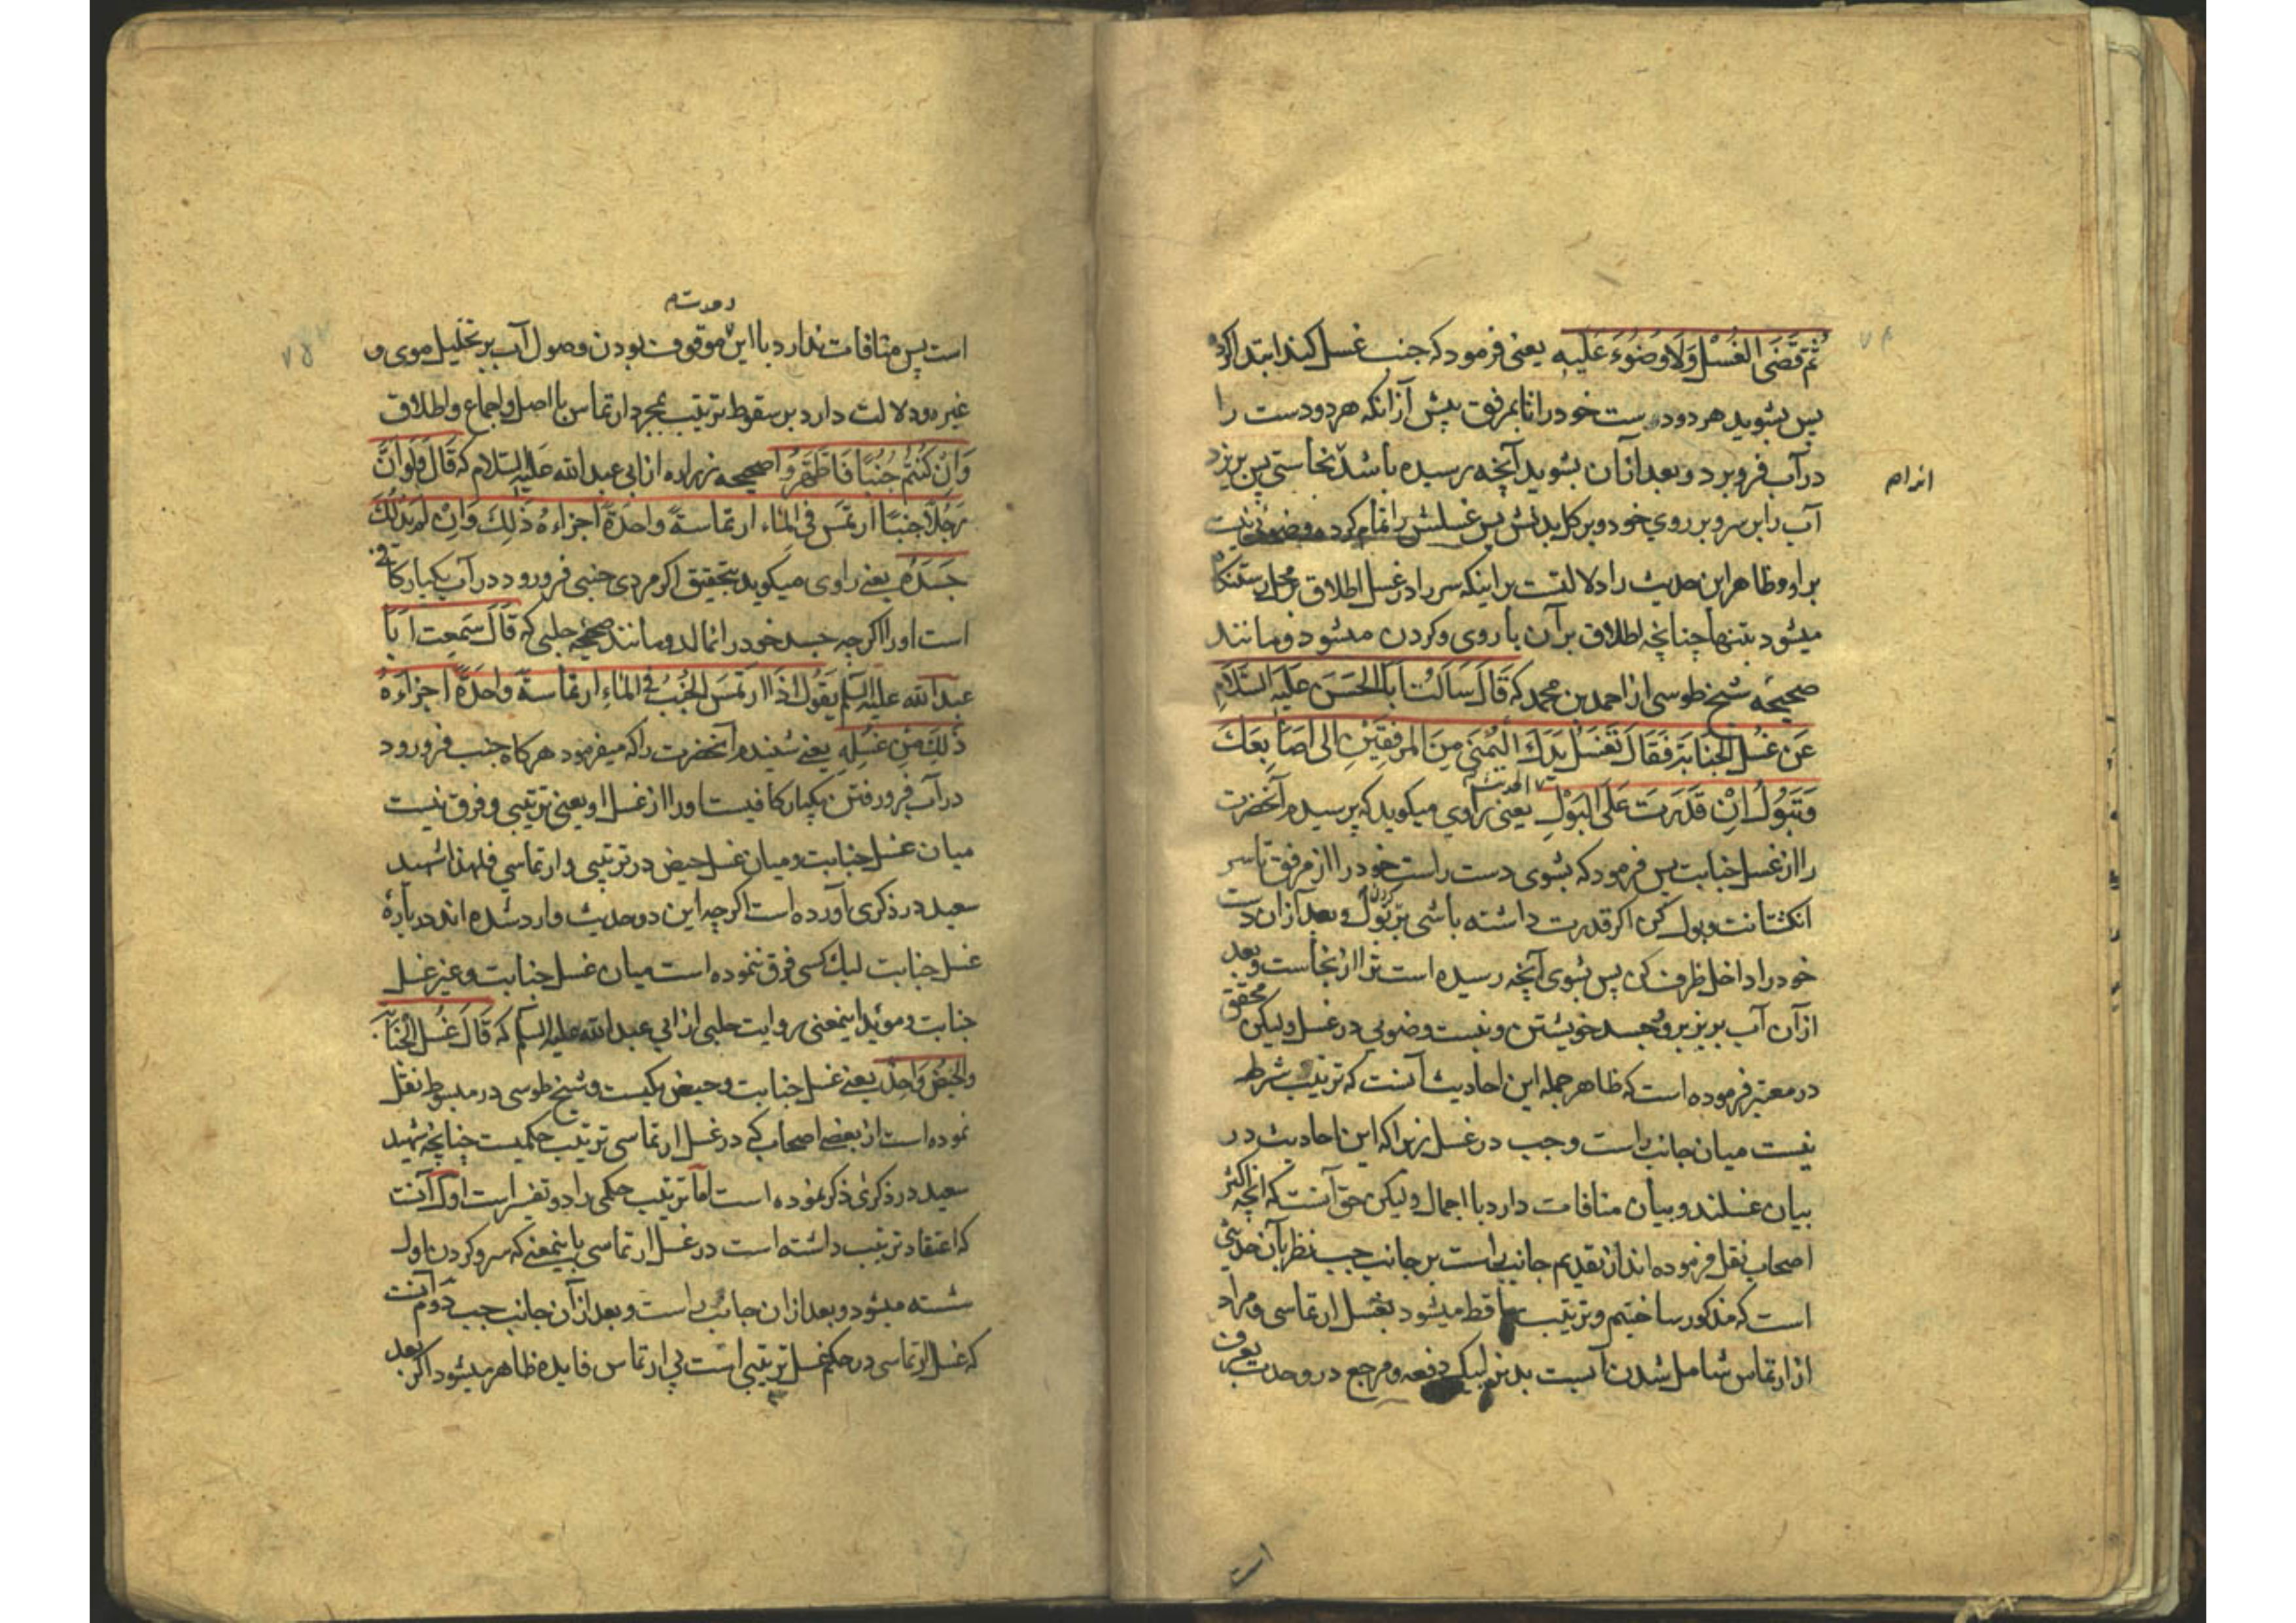 ثُمَّ قَضَى الغُسْلَ وَلَا وُضُوءَ عَلَيه يعنى فرمود كه جنب غسل كند ابتدا كرده
پس بشويد هر دو دست خود را تا بمرفق پيش از آنكه هر دو دست را
در آب فرو برد و بعد از آن بشويد آنچه رسيده باشد نجاستى پس بريزد
اندام
آب را بر سر و بر روي خود و بر كل بدنش پس غسلش را تمام كرده وضوئى نيست
بر او و ظاهر اين حديث را دلالتست بر اينكه سر را در غسل اطلاق بر محل رستنگاه
ميشود بتنها چنانچه اطلاق بر آن با روى و كردن ميشود و مانند
صحيحه شيخ طوسى از احمد بن محمد كه قَالَ سَاَلتُ اَبَا الحَسَنِ عَلَيهِ السَّلَامِ
عَن غُسْلِ الجَنَابَةِ فَقَالَ تَغسَلُ يَدَكَ اليُمنَى مِنَ المِرفَقَينِ اِلى اَصَابِعَكَ
وَتَبُولُ اِنْ قَدَرتَ عَلَى البَوْلِ الحديث يعنى راوي ميكويد كه پرسيدم آنحضرت
را از غسل جنابت پس فرمود كه بشوى دست راست خود را از مرفق تا سر
انكشتانت و بول كن اكر قدرت داشته باشى بر بول كردن و بعد از آن دست
خود را داخل ظرف كن پس بشوى آنچه رسيده است ترا از نجاست و بعد
از آن آب بريز بر سر و جسد خويشتن و نيست وضويى در غسل و ليكن محقق
در معتبر فرموده است كه ظاهر جمله اين احاديث آنست كه ترتيب شرط
نيست ميان جانب راست و چپ در غسل زيرا كه اين احاديث در
بيان غسلند و بيان منافات دارد با اجمال و ليكن حق آنست كه آنچه اكثر
اصحاب نقل فرموده اند از تقديم جانب راست بر جانب چپ نظر بآن حديثى
است كه مذكور ساختيم و ترتيب ساقط ميشود بغسل ارتماسى و مراد
از ارتماس شامل شدن آبست بدنرا بيك دفعه و مرجع در وحدت بعرف
است
وحدت
است پس منافات ندارد با اين موقوف بودن وصول آب بر تخليل موى و
غير او دلالت دارد بر سقوط ترتيب بمجرد ارتماس با اصل و اجماع و اطلاق
وَاِنْ كُنتُم جُنُبًا فَاطَّهَّرُوا صحيحه زراره از ابى عبد الله عليه السلام كه قَالَ وَلَو اَنَّ
رَجُلًا جُنُبًا ارتَمَسَ فِى المَاءِ ارتِمَاسَةً وَاحِدَةً اَجزَاءَهُ ذٰلِكَ وَاِنْ لَم يَدلُك
جَسَدَهُ يعنى راوى ميكويد بتحقيق اكر مردى جنبى فرو رود در آب يكبار كافى
است او را اكر چه جسد خود را نمالد و مانند صحيحه حلبى كه قَالَ سَمِعتُ اَبَا
عبد الله عليه السلم يَقُولُ اِذَا ارتَمَسَ الجُنُبُ فِى المَاءِ ارتِمَاسَةً وَاحِدَةً اَجزَاءَهُ
ذٰلِكَ مِن غُسْلِهِ يعنى شنيدم آنحضرت را كه ميفرمود هركاه جنب فرو رود
در آب فرو رفتن يكبار كافيست او را از غسل او يعنى ترتيبى و فرق نيست
ميان غسل جنابت و ميان غسل حيض در ترتيبى و ارتماسي فلهذا شهيد
سعيد در ذكرى آورده است اكر چه اين دو حديث وارد شده اند در بارۀ
غسل جنابت ليك كسى فرق ننموده است ميان غسل جنابت و غير غسل
جنابت و مويد اينمعنى روايت حلبى از ابي عبد الله عليه السلم كه قَالَ غُسْلُ الجَنَابَةِ
وَالحَيضِ وَاحِدٌ يعنى غسل جنابت و حيض يكيست و شيخ طوسى در مبسوط نقل
نموده است از بعضى اصحاب كه در غسل ارتماسى ترتيب حكميست چنانچه شهيد
سعيد در ذكرى ذكر نموده است اما ترتيب حكمى را دو تفسير است اول آنست
كه اعتقاد ترتيب داشته است در غسل ارتماسى باينمعنى كه سر و كردن اول
شسته ميشود و بعد از آن جانب راست و بعد از آن جانب چپ دوم آنست
كه غسل ارتماسى در حكم غسل ترتيبى است بى ارتماس فايده ظاهر ميشود اكر بعد